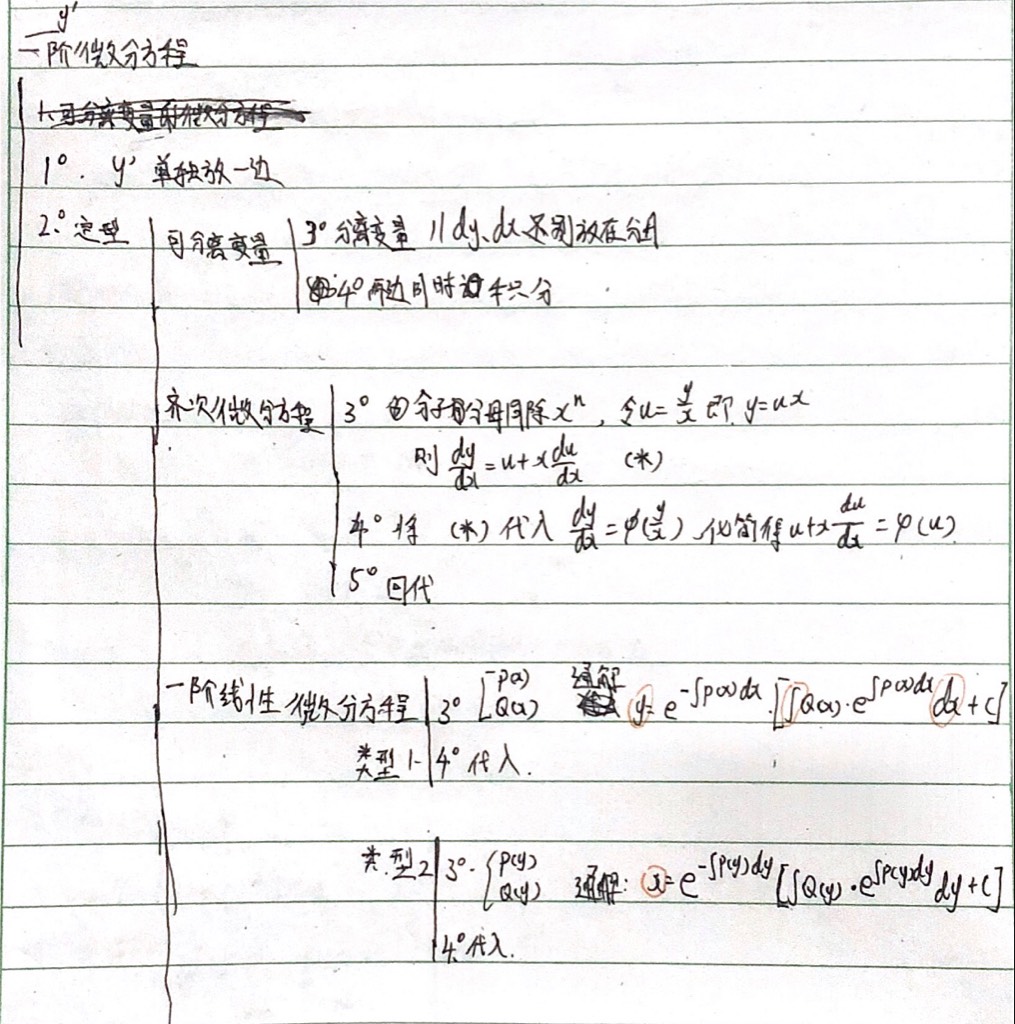 y'
一阶微分方程
1、可分离变量的微分方程
1°. y' 单独放一边
2°. 定型
可分离变量
3° 分离变量 // dy、dx 不能放在分母
4° 两边同时 积分
齐次微分方程
3° 分子分母同除 xⁿ, 令 u = y/x 即 y = ux
则 dy/dx = u + x du/dx (*)
4° 将 (*) 代入 dy/dx = φ(y/x), 化简得 u + x du/dx = φ(u)
5° 回代
一阶线性微分方程
类型1
3° [ P(x) Q(x) 通解 y = e^{-∫P(x)dx}·[∫Q(x)·e^{∫P(x)dx} dx + C]
4° 代入.
类型2
3°. { P(y) Q(y) 通解: x = e^{-∫P(y)dy} [∫Q(y)·e^{∫P(y)dy} dy + C]
4° 代入.